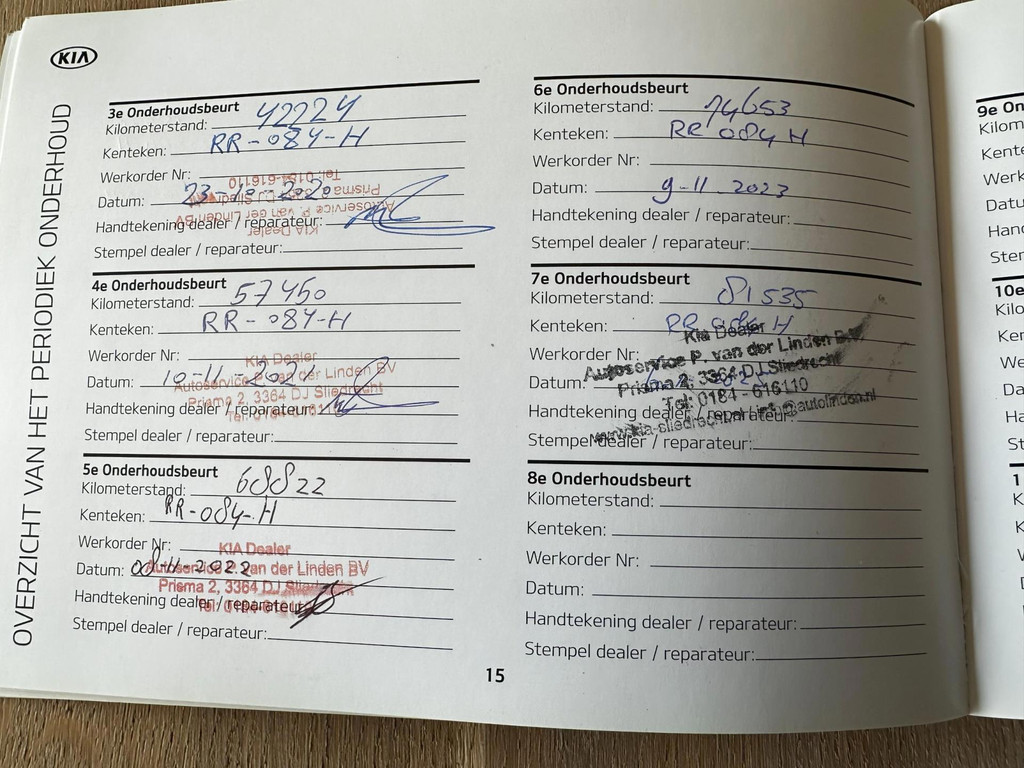 KIA
OVERZICHT VAN HET PERIODIEK ONDERHOUD
3e Onderhoudsbeurt
Kilometerstand: 42224
Kenteken: RR-084-H
Werkorder Nr:
Datum: 23-10-2020
Handtekening dealer / reparateur:
Stempel dealer / reparateur:
KIA Dealer
Autoservice P. van der Linden BV
Prisma 2, 3364 DJ Sliedrecht
Tel: 0184-616110
4e Onderhoudsbeurt
Kilometerstand: 57450
Kenteken: RR-084-H
Werkorder Nr:
Datum: 10-11-2021
Handtekening dealer / reparateur:
Stempel dealer / reparateur:
KIA Dealer
Autoservice P. van der Linden BV
Prisma 2, 3364 DJ Sliedrecht
5e Onderhoudsbeurt
Kilometerstand: 68822
Kenteken: RR-084-H
Werkorder Nr:
Datum: 08-11-2022
Handtekening dealer / reparateur:
Stempel dealer / reparateur:
KIA Dealer
Autoservice P. van der Linden BV
Prisma 2, 3364 DJ Sliedrecht
15
6e Onderhoudsbeurt
Kilometerstand: 74653
Kenteken: RR 084 H
Werkorder Nr:
Datum: 9-11-2023
Handtekening dealer / reparateur:
Stempel dealer / reparateur:
7e Onderhoudsbeurt
Kilometerstand: 81535
Kenteken: RR 084 H
Werkorder Nr:
Datum:
Handtekening dealer / reparateur:
Stempel dealer / reparateur:
Kia Dealer
Autoservice P. van der Linden B.V.
Prisma 2, 3364 DJ Sliedrecht
Tel: 0184 - 616110
8e Onderhoudsbeurt
Kilometerstand:
Kenteken:
Werkorder Nr:
Datum:
Handtekening dealer / reparateur:
Stempel dealer / reparateur: